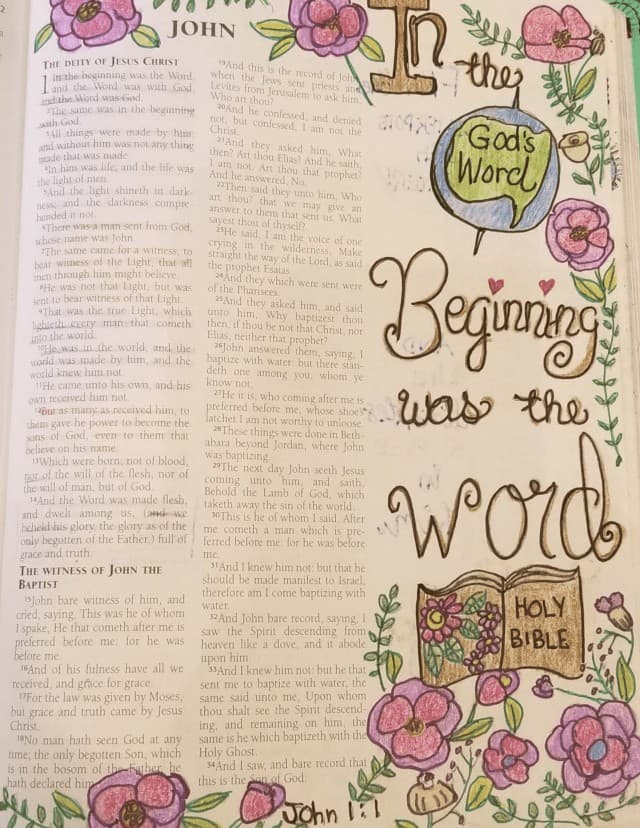 JOHN
THE DEITY OF JESUS CHRIST
1 In the beginning was the Word
and the Word was with God
and the Word was God.
2The same was in the beginning
with God.
3All things were made by him;
and without him was not any thing
made that was made.
4In him was life, and the life was
the light of men.
5And the light shineth in dark-
ness; and the darkness compre-
hended it not.
6There was a man sent from God,
whose name was John.
7The same came for a witness, to
bear witness of the Light, that all
men through him might believe.
8He was not that Light, but was
sent to bear witness of that Light.
9That was the true Light, which
lighteth every man that cometh
into the world.
10He was in the world, and the
world was made by him, and the
world knew him not.
11He came unto his own, and his
own received him not.
12But as many as received him, to
them gave he power to become the
sons of God, even to them that
believe on his name:
13Which were born, not of blood,
nor of the will of the flesh, nor of
the will of man, but of God.
14And the Word was made flesh,
and dwelt among us, (and we
beheld his glory, the glory as of the
only begotten of the Father,) full of
grace and truth.
THE WITNESS OF JOHN THE
BAPTIST
15John bare witness of him, and
cried, saying, This was he of whom
I spake, He that cometh after me is
preferred before me: for he was
before me.
16And of his fulness have all we
received, and grace for grace.
17For the law was given by Moses,
but grace and truth came by Jesus
Christ.
18No man hath seen God at any
time; the only begotten Son, which
is in the bosom of the Father, he
hath declared him.
19And this is the record of John,
when the Jews sent priests and
Levites from Jerusalem to ask him,
Who art thou?
20And he confessed, and denied
not; but confessed, I am not the
Christ.
21And they asked him, What
then? Art thou Elias? And he saith,
I am not. Art thou that prophet?
And he answered, No.
22Then said they unto him, Who
art thou? that we may give an
answer to them that sent us. What
sayest thou of thyself?
23He said, I am the voice of one
crying in the wilderness, Make
straight the way of the Lord, as said
the prophet Esaias.
24And they which were sent were
of the Pharisees.
25And they asked him, and said
unto him, Why baptizest thou
then, if thou be not that Christ, nor
Elias, neither that prophet?
26John answered them, saying, I
baptize with water: but there stan-
deth one among you, whom ye
know not;
27He it is, who coming after me is
preferred before me, whose shoe's
latchet I am not worthy to unloose.
28These things were done in Beth-
abara beyond Jordan, where John
was baptizing.
29The next day John seeth Jesus
coming unto him, and saith,
Behold the Lamb of God, which
taketh away the sin of the world.
30This is he of whom I said, After
me cometh a man which is pre-
ferred before me: for he was before
me.
31And I knew him not: but that he
should be made manifest to Israel,
therefore am I come baptizing with
water.
32And John bare record, saying, I
saw the Spirit descending from
heaven like a dove, and it abode
upon him.
33And I knew him not: but he that
sent me to baptize with water, the
same said unto me, Upon whom
thou shalt see the Spirit descend-
ing, and remaining on him, the
same is he which baptizeth with the
Holy Ghost.
34And I saw, and bare record that
this is the Son of God.
In
the
God's
Word
Beginning
was the
Word
HOLY
BIBLE
John 1:1